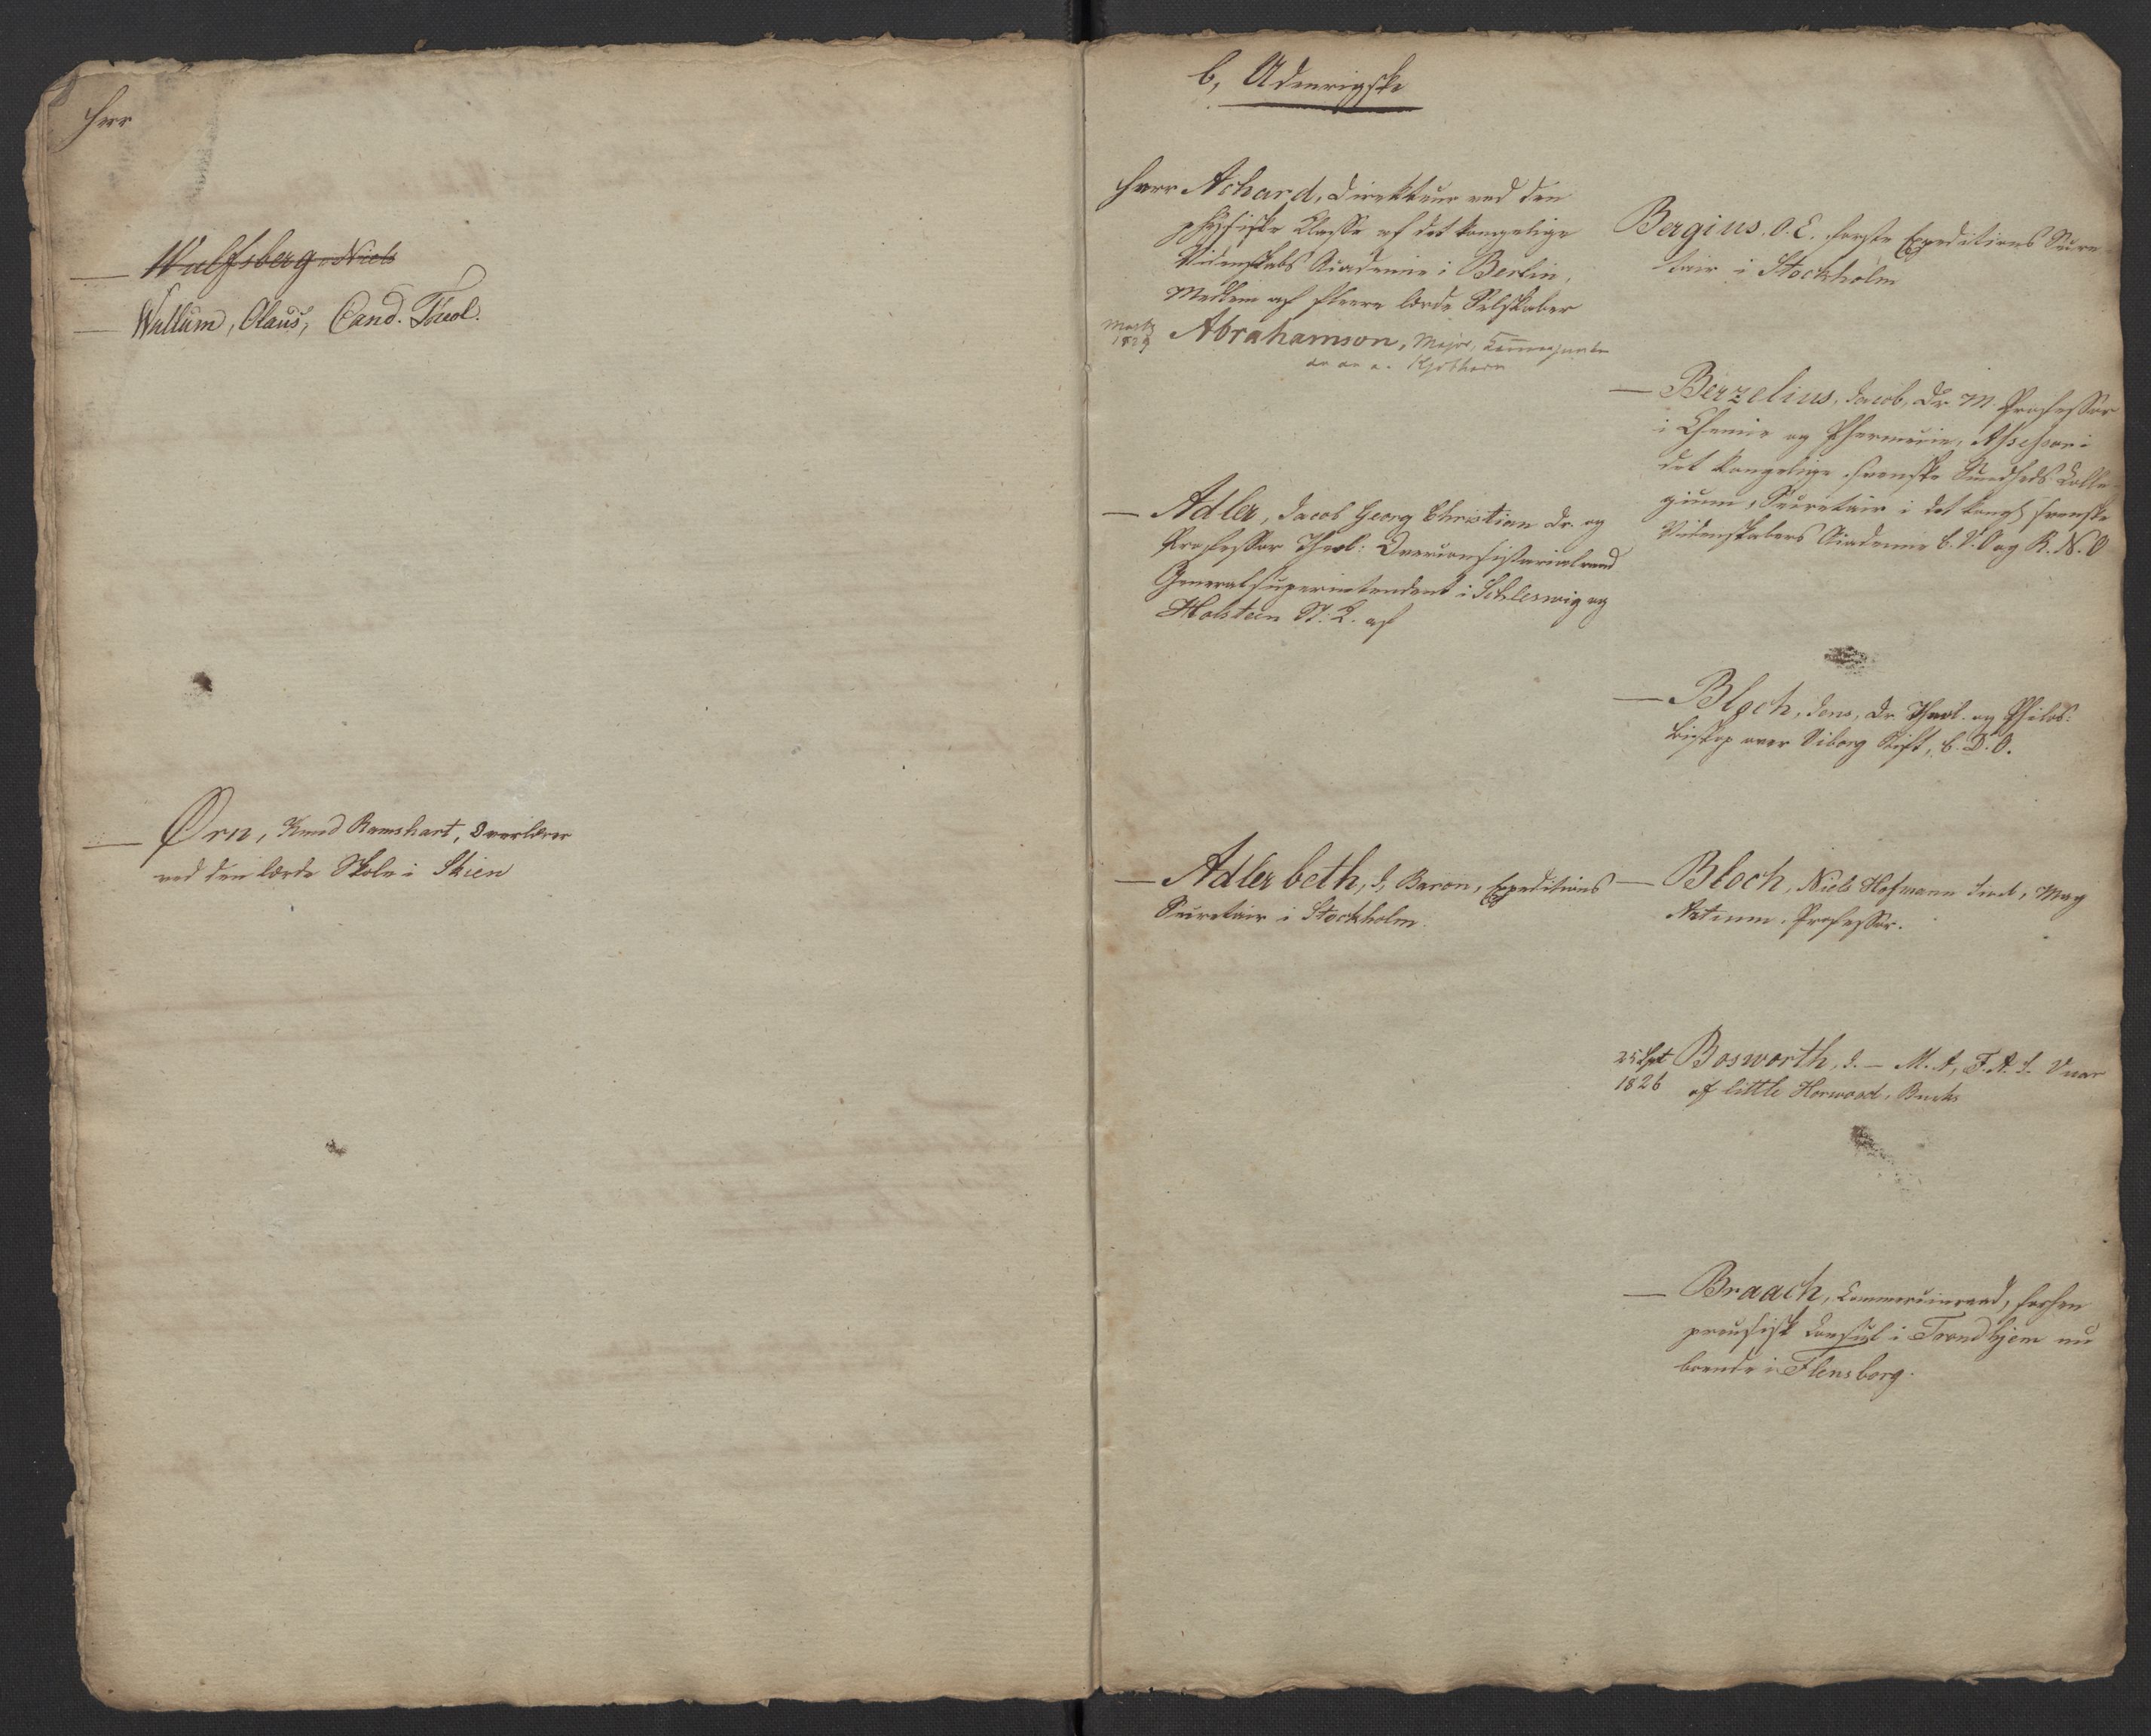 Herr
— Wulfsberg, Niels
— Wullum, Olaus, Cand. Theol.
— Ørn, Knud Ramshart, Overlærer
ved den lærde Skole i Skien
b, Udenrigske
Herr Achard, Direkteur ved den
physiske Classe af det kongelige
Videnskabs Academie i Berlin,
Medlem af fleere lærde Selskaber
Marts
1829 Abrahamson, Major,
— Adler, Jacob Georg Christian Dr. og
Professor Theol: Overconsistorialraad
Generalsuperintendent i Schleswig og
Holsteen
— Adlerbeth, J, Baron, Expeditions
Secretair i Stockholm.
Bergius, O. E. første Expeditions Secre
tair i Stockholm
— Berzelius, Jacob, Dr. M. Professor
i Chemie og Pharmacie, Assessor i
det kongelige svenske Sundheds Colle
gium, Secretair i det kongl svenske
Videnskabers Academie C. V. O og R. N. O
— Bloch, Jens, Dr. Theol. og Philos:
Biskop over Viborg Stift, C. D. O.
— Bloch, Niels Hofmann Sevel, Mag
Artium. Professor.
25 Spt
1826 Bosworth, J. — M. A, F. A. S. Vicar
of little Horwood, Bucks
— Braach, Commerceraad, forhen
preusisk Consul i Trondhjem nu
boende i Flensborg.